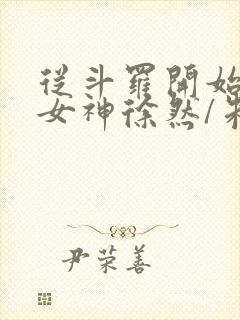 從斗羅開始
女神徐然/
尹荣善